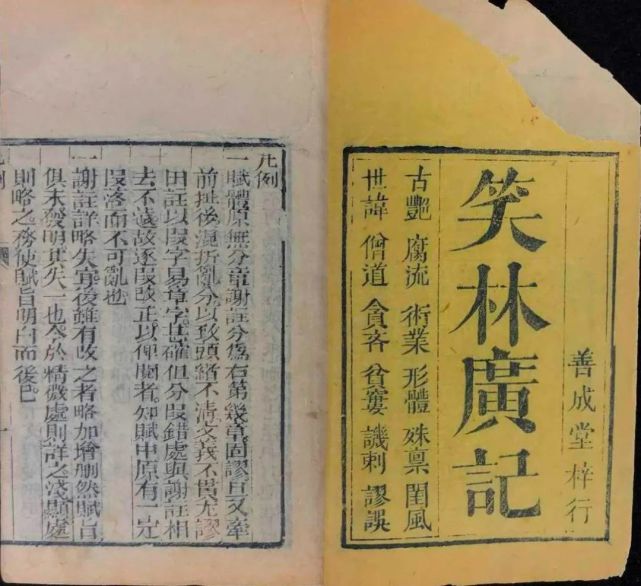 善成堂梓行
笑林廣記
古豔 腐流 術業 形體 殊稟 閨風
世諱 僧道 貪吝 貧窶 譏刺 謬誤
凡例
一賦體原無分章謝註分爲右第幾章固謬且又牽
前扯後混折亂分以致頭緒不清文義不貫尤謬
田註以段字易章字也確但分段錯處與謝註相
去不遠故逐段改正以俾閱者知賦中原有一定
段落而不可亂也
一謝註詳略失宜後雖有改之者略加增刪然賦旨
俱未發明其失一也今於精微處則詳之淺顯處
則略之務使賦旨明白而後已